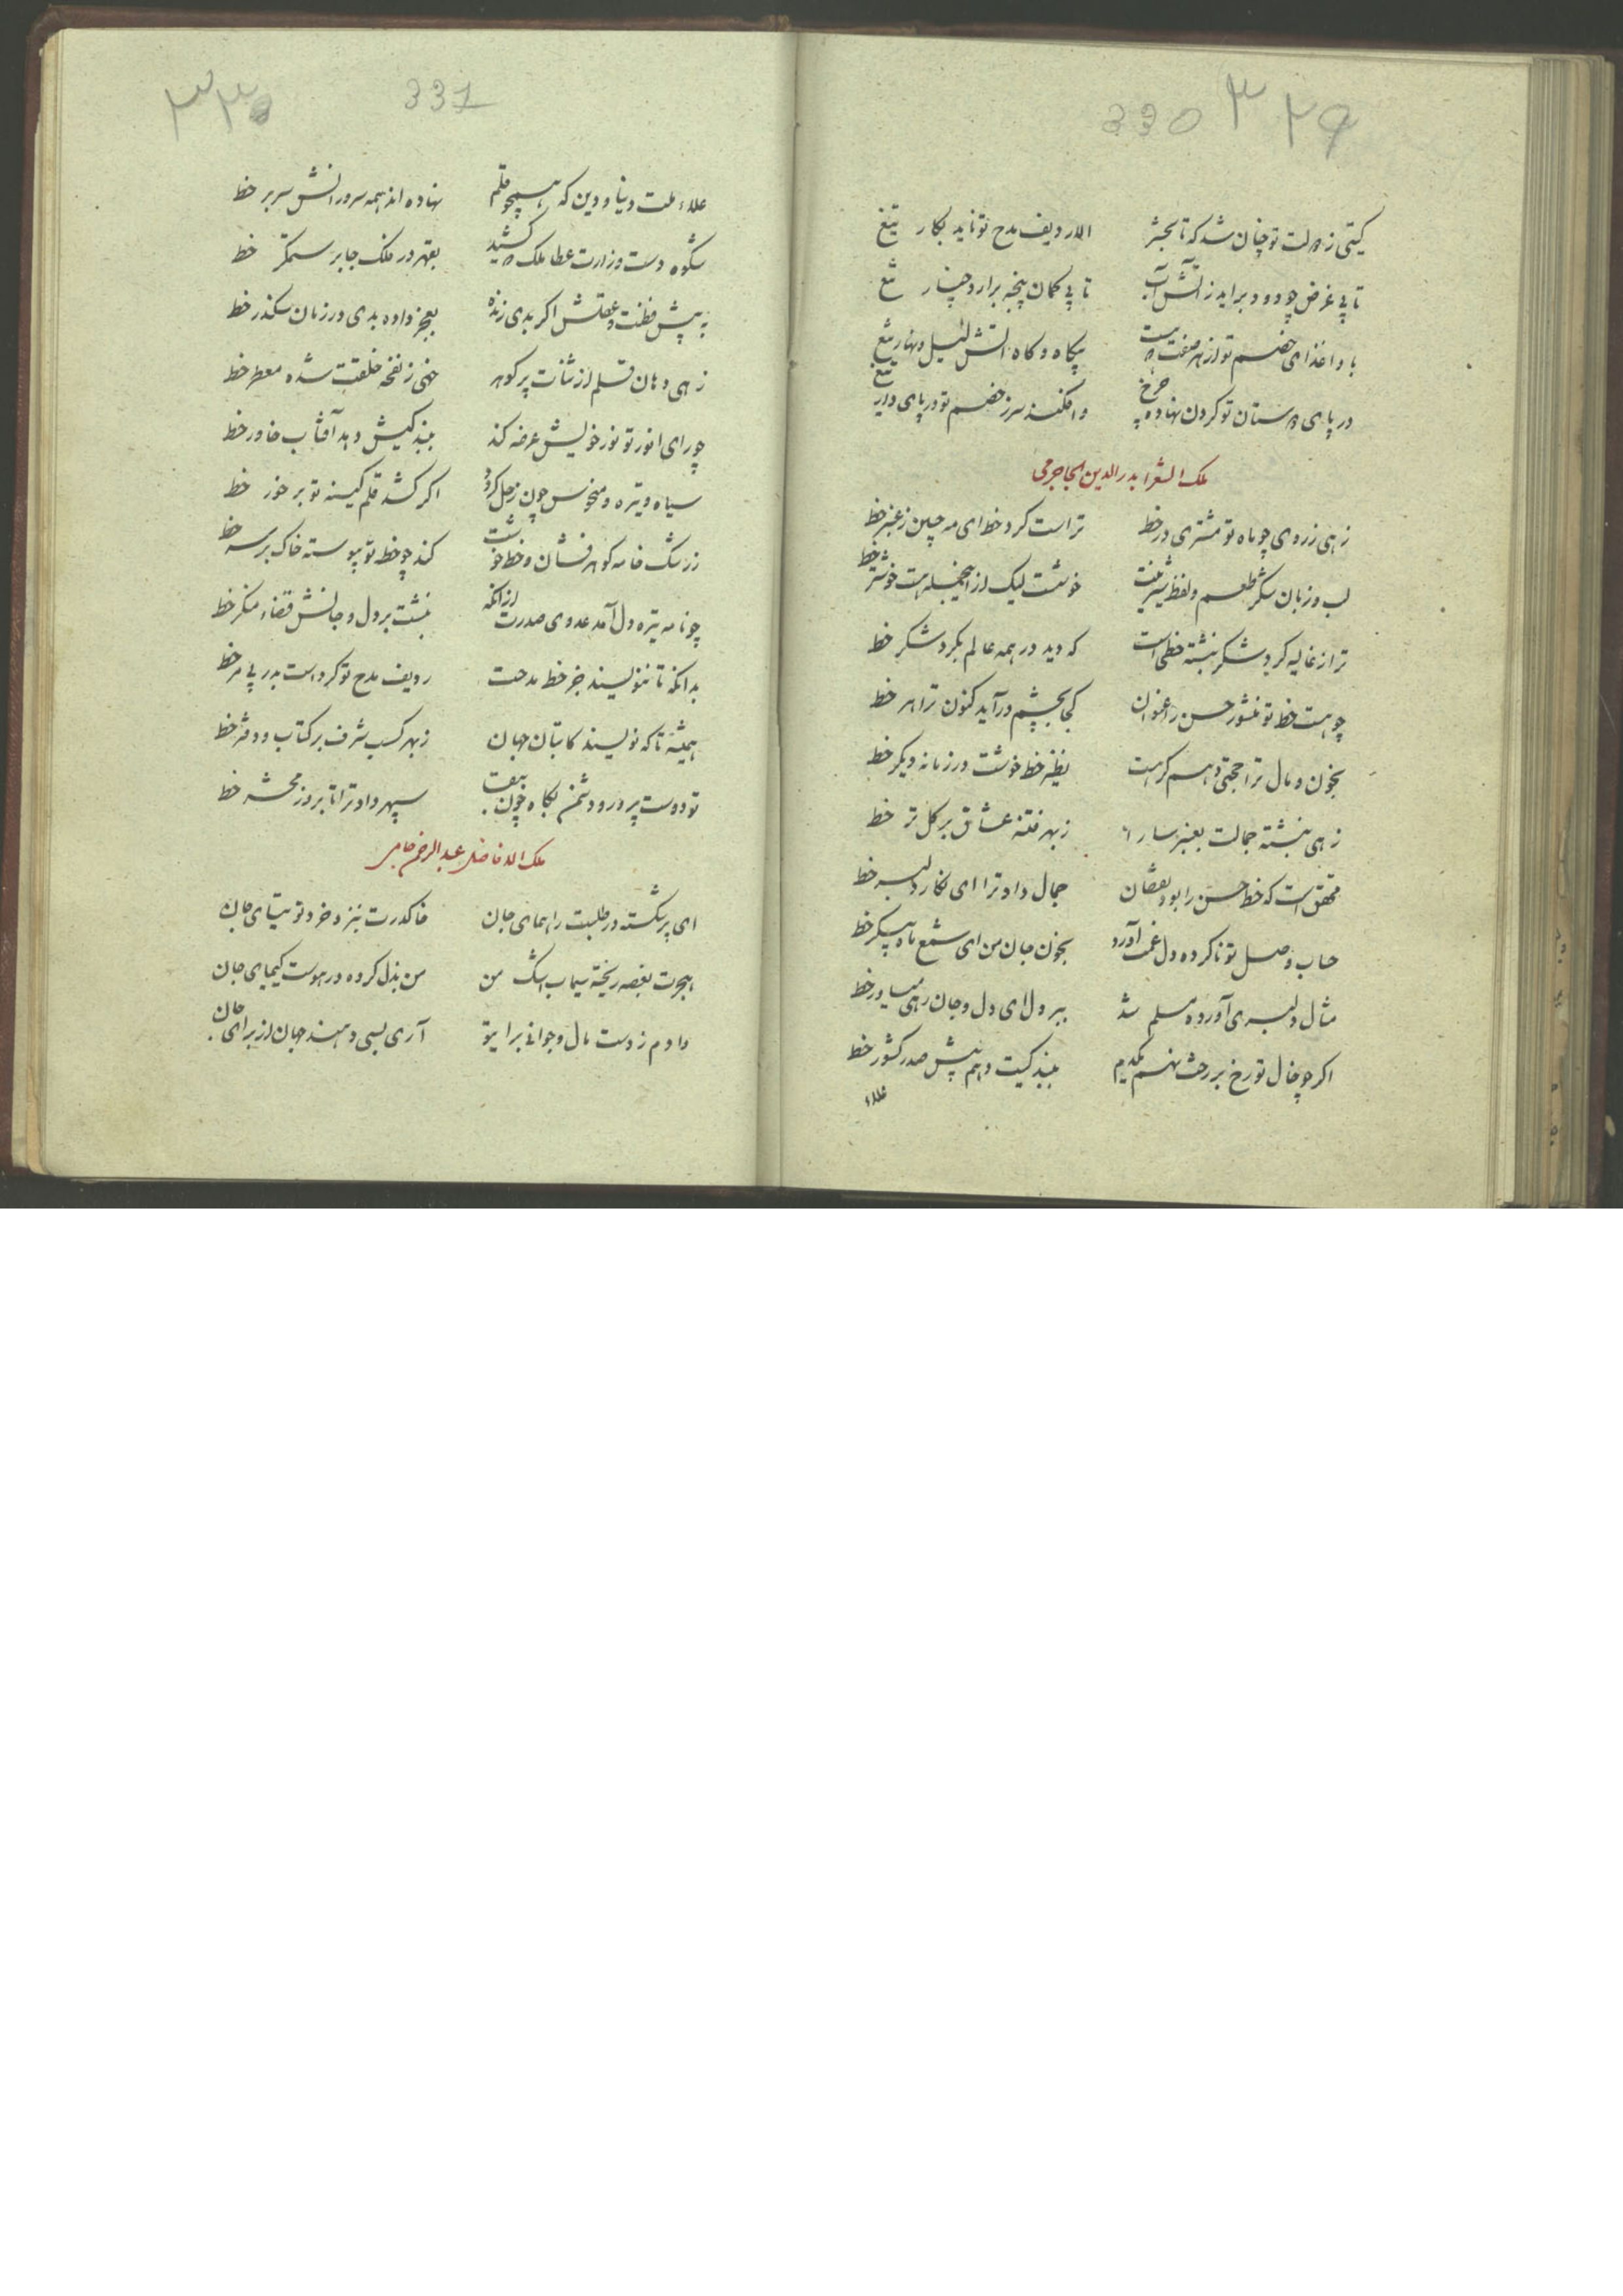 330 ٣٢٩
کیتی ز عدلت تو چنان شد که تا بحشر الا ردیف مدح تو ناید بکار تیغ
تا پی غرض چو دود براید ز آتش آب تا پی کمان پنجه برارد چنار تیغ
بادا غذای خصم تو از هر صفت که هست پکاه و کاه آتش لیل و نهار تیغ
در پای دوستان تو کردن نهاده چرخ وافکنده سر ز خصم تو در پای دار تیغ
ملک الشعرا بدرالدین الجاجرمی
زهی ز روی چو ماه تو مشتری در خط تراست کرد خط ای مه چین ز عنبر خط
لب و زبان شکر طعم و لفظ شیرینت خوشست لیک از اینجمله هست خوشتر خط
ترا ز غالیه کرد شکر نبشته خطی است که دید در همه عالم بکرد شکر خط
چو هست خط تو منشور حسن را عنوان کجا بچشم درآید کنون ترا هر خط
بخون و مال ترا حجتی دهم کر هست نظیر خط خوشت در زمانه دیکر خط
زهی نبشته جمالت بعنبر سارا ز بهر فتنه عشاق بر کل تر خط
محقق است که خط حسن را بود نقصان جمال داد ترا ای نکار دلبر خط
حساب وصل تو ناکرده دل غمت آورد بخون جان من ای شمع ماه پیکر خط
مثال دلبری آورده مسلم شد ببر دل ای دل و جان رهی میاور خط
اکر چو خال تو رخ بر رخت نهم یکدم ببندکیت دهم پیش صدر کشور خط
علاء
331 ٣٣٠
علاء ملت دنیا و دین که همچو قلم نهاده اند همه سرورانش سر بر خط
شکوه دست وزارت عطا ملک که کشید بقهر در ملک جابر ستمکر خط
به پیش فطنت و عقلش اکر بدی زنده بعجز داده بدی در زمان سکندر خط
زهی دهان قلم از ثنات پر کوهر خهی ز نفحه خلقت شده معطر خط
چو رای انور تو نور خویش عرضه کند ببندکیش دهد آفتاب خاور خط
سیاه و تیره و منحوس چون زحل کردد اکر کشد قلم کینه تو بر خور خط
ز رشک خامه کوهر فشان و خط خوشت کند چو خط تو پیوسته خاک بر سر خط
چو نامه تیره دل آمد عدوی صدرت از آنکه نبشت بر دل و جانش قضاء منکر خط
بدانکه تا ننویسند جز خط مدحت ردیف مدح تو کرد است بدر پی مر خط
همیشه تا که نویسند کاتبان جهان ز بهر کسب شرف بر کتاب و دفتر خط
تو دوست پرور و دشمن بکاه چون سپهر داد ترا تا بروز محشر خط
ملک الافاضل عبدالرحمن جامی
ای پر شکسته در طلبت را همای جان خاک درت بنزد خرد توتیای جان
هجرت بغصه ریخته سیماب اشک من من بذل کرده در هوست کیمیای جان
دادم ز دست مال و جوانی برای تو آری بسی دهند جهان از برای جان